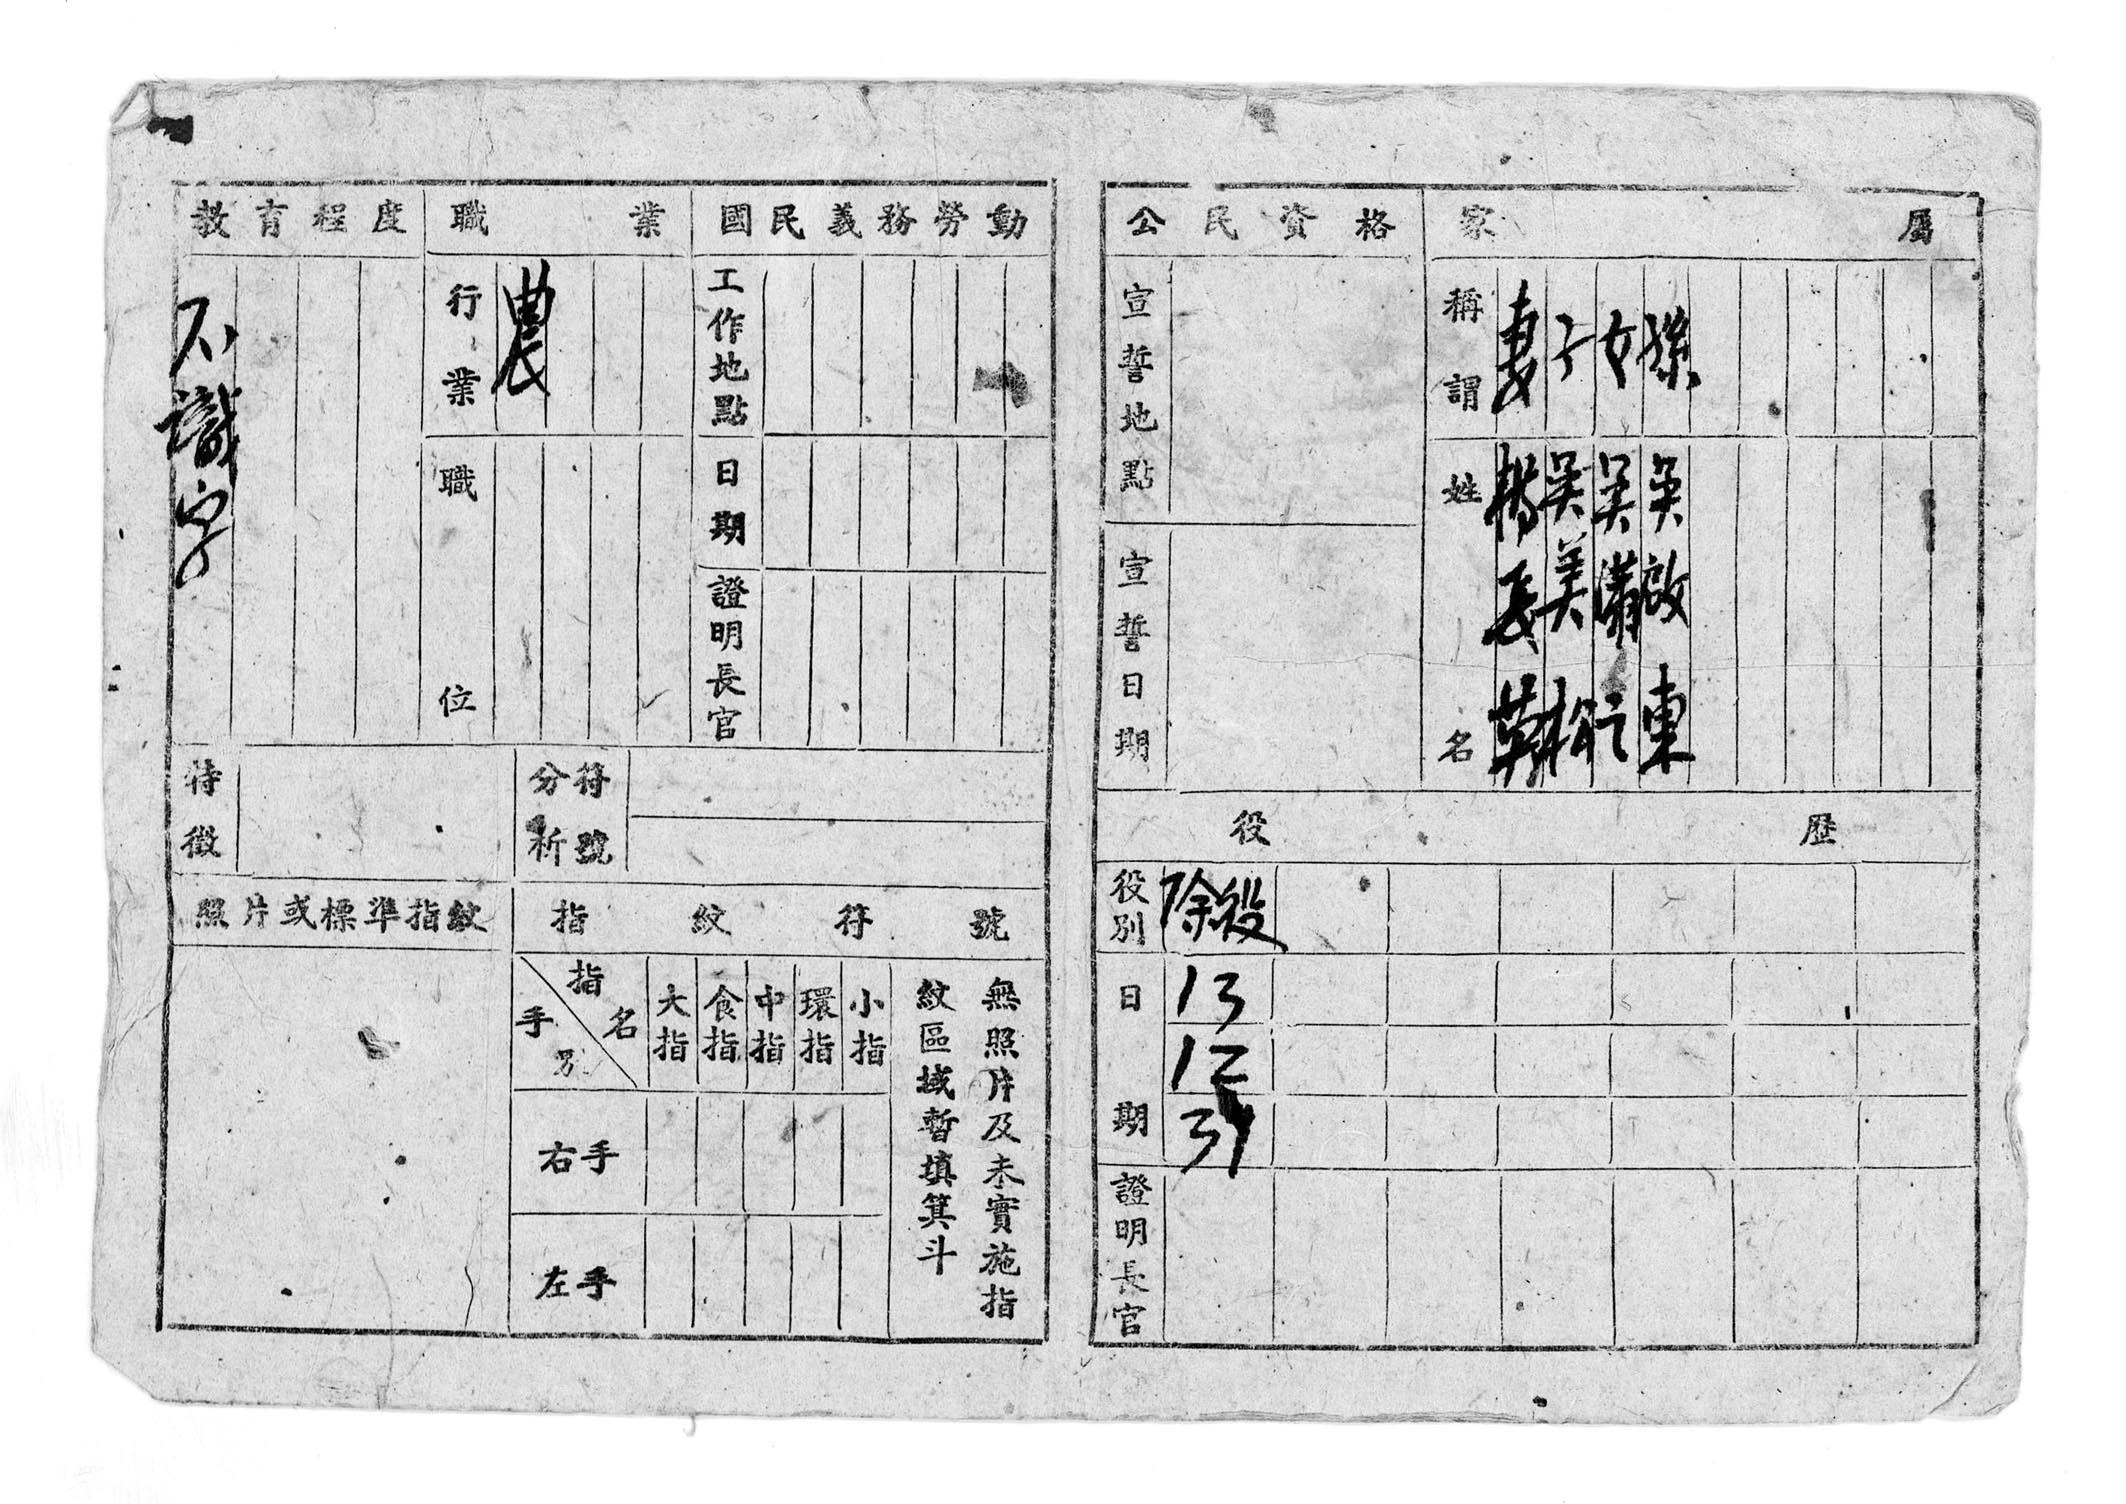 教育程度
不識字
職業
行業
農
職位
國民義務勞動
工作地點
日期
證明長官
特徵
分析符號
照片或標準指紋
指紋符號
指名
手別
大指
食指
中指
環指
小指
右手
左手
無照片及未實施指
紋區域暫填箕斗
公民資格
宣誓地點
宣誓日期
家屬
稱謂
妻 子 女 孫
姓名
楊
吳美松
吳滿
吳啟東
役歷
役別
除役
日期
13
12
31
證明長官